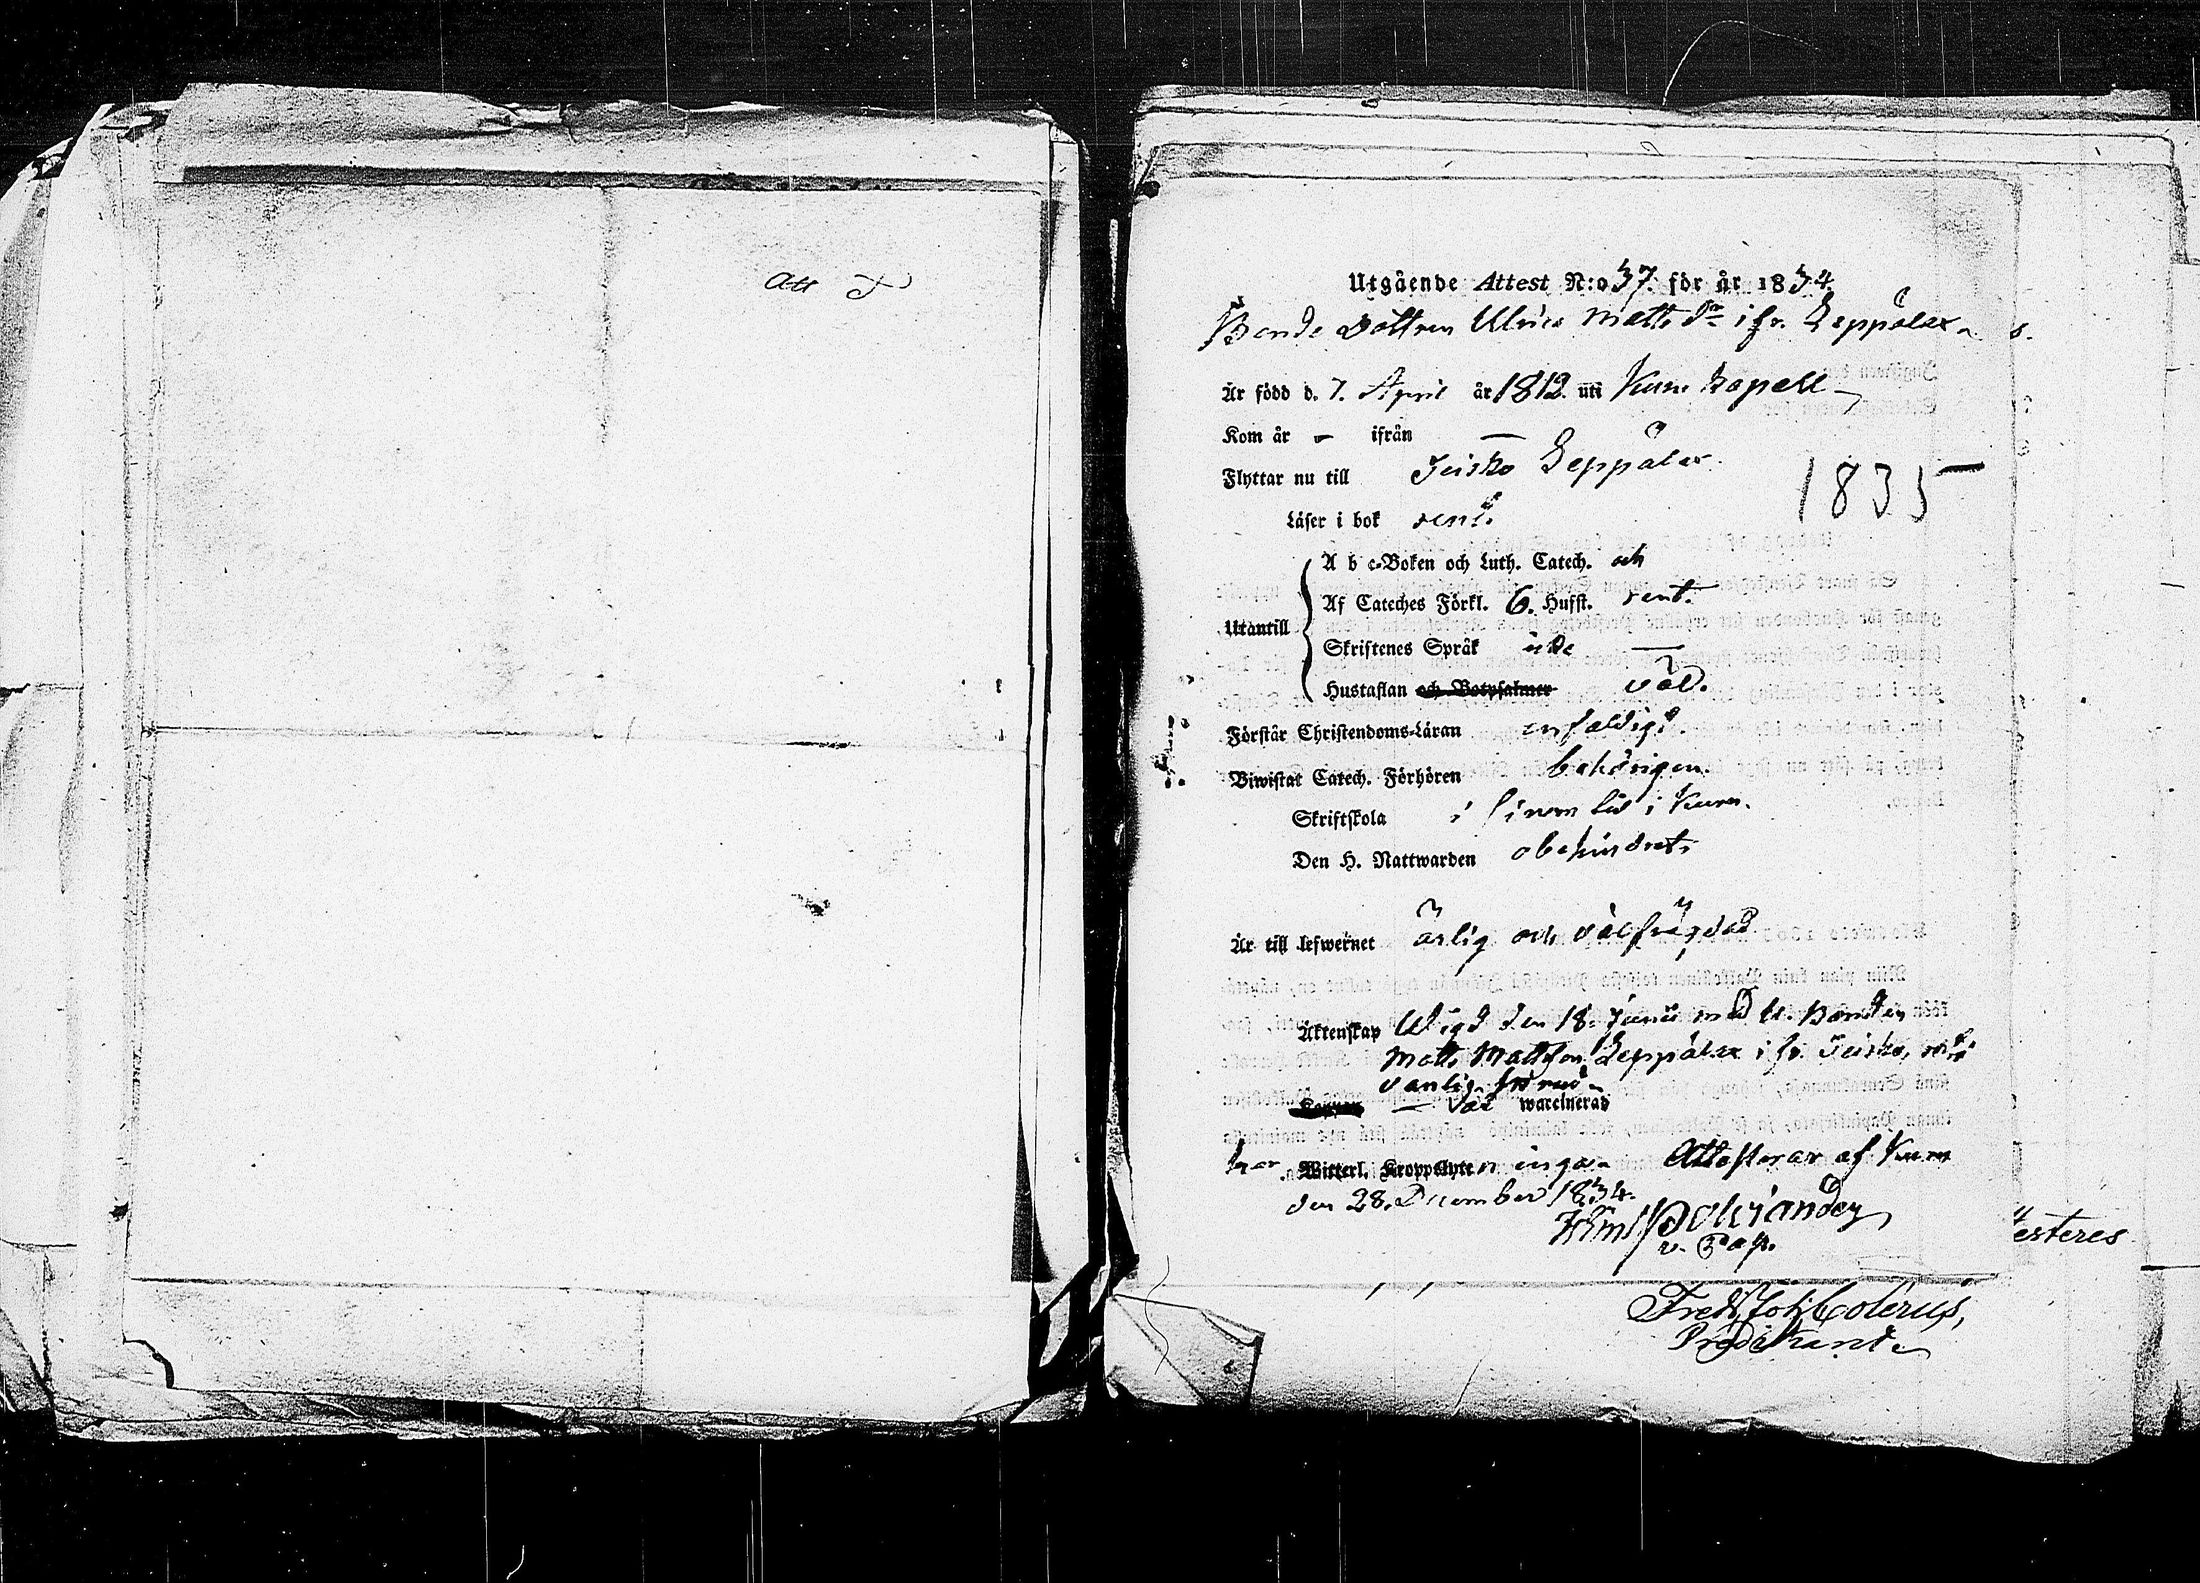 Att
Utgående Attest N:o 37. för år 1834.
Bonde Dottren Ulrica Matts Dr ifr. Seppälax
Är född d. 7. April år 1812. uti Kuru Kapell
Kom år — ifrån —
Flyttar nu till Teisko Seppälax.
1835
Läser i bok rent.
Utantill
A b c-Boken och Luth. Catech. och
Af Cateches Förkl. 6. Hufst. rent.
Skriftenes Språk icke —
Hustaflan och Botpsalmer väl.
Förstår Christendoms-Läran enfaldigt.
Biwistat Catech. Förhören behörigen.
Skriftskola i sinom tid i Kuru.
Den H. Nattwarden obehindrat.
Är till lefwernet ärlig och välfrägdad
Äktenskap Wigd den 18. Junii med U. Bonden
Matts Mattsson Seppälax ifr. Teisko,
vanlig
— Vac waccinerad
har Witterl. Kroppslyten inga. Attesterar af Kuru
den 28. December 1834.
v. Past.
esteres
Fredr. Joh. Colerus,
Predikant.